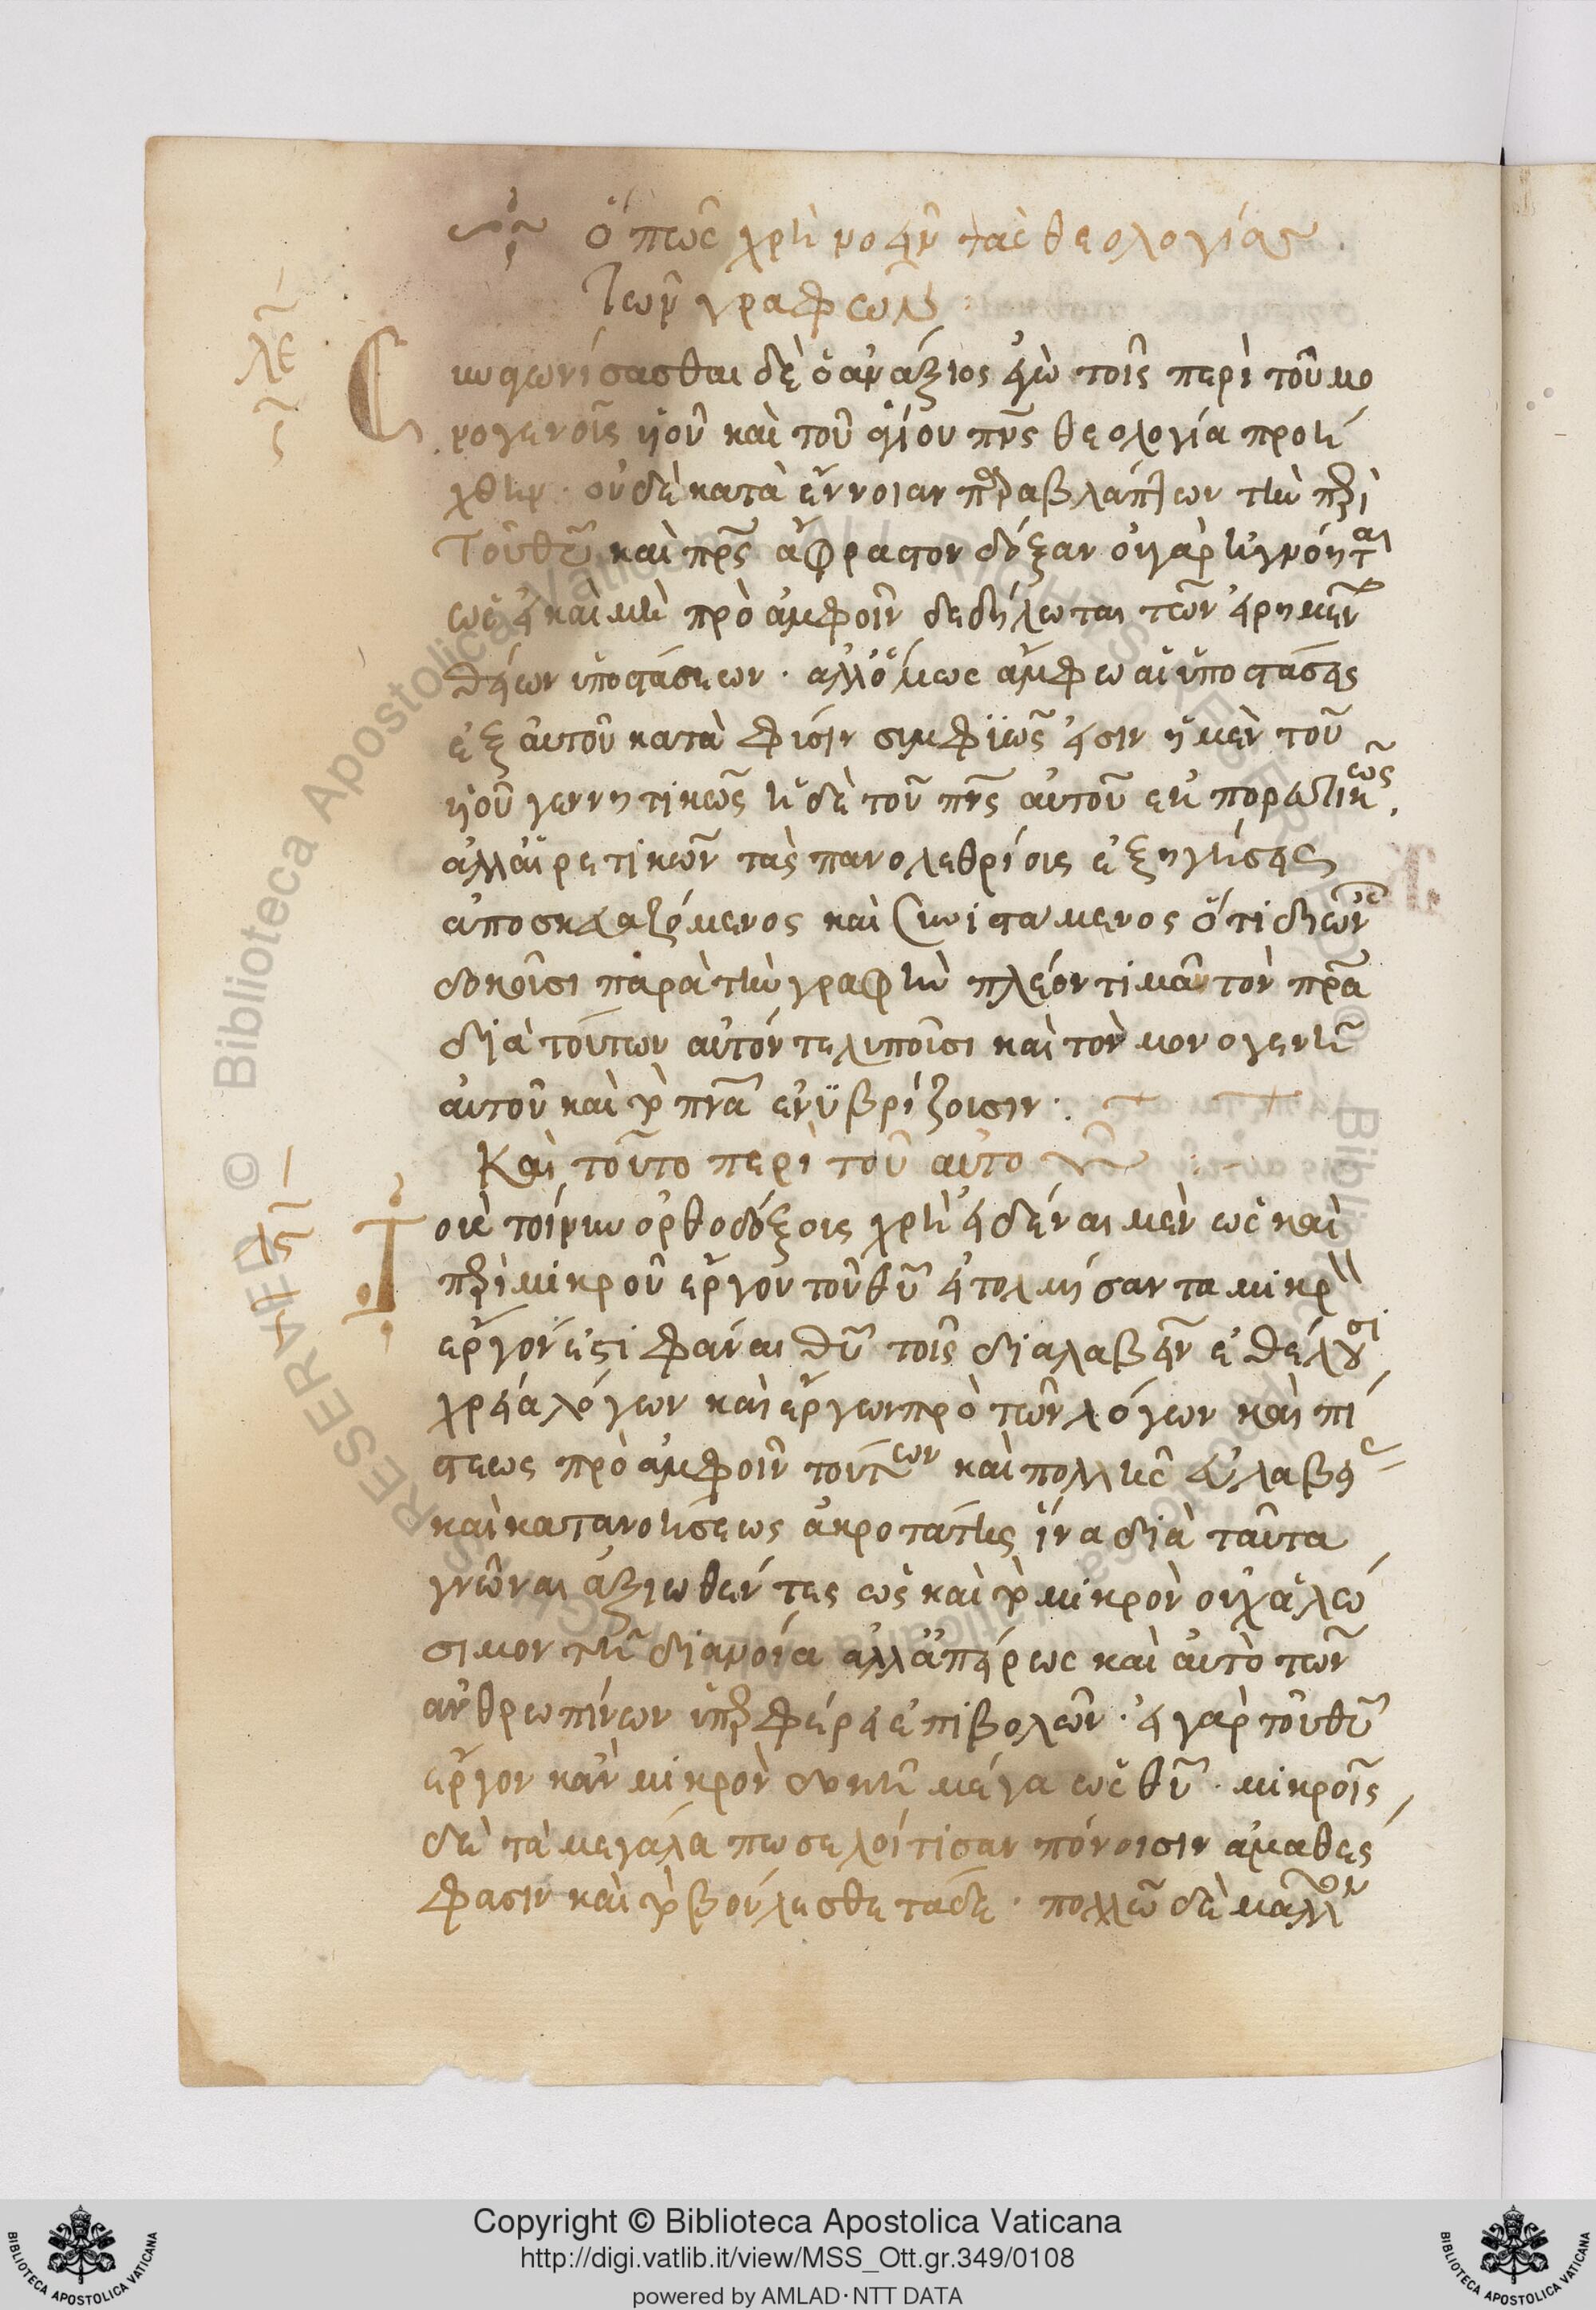 ὅπως χρὴ νοεῖν τὰς θεολογίας
τῶν γραφῶν:
λε
Συναγωνίσασθαι δὲ ὁ ἀνάξιος ἐγὼ τοῖς περὶ τοῦ μο
νογενοῦς υἱοῦ καὶ τοῦ ἁγίου πνς θεολογία προή
χθην · οὐδὲ κατὰ ἔννοιαν παραβλάπτων τὴν περὶ
τοῦ θυ καὶ πρς ἄφραστον δόξαν οὐ γὰρ ἠγνόηται
ὡς εἰ καὶ μὴ πρὸ ἀμφοῖν δεδήλωται τῶν εἰρημέν
θείων ὑποστάσεων · ἀλλ' ὅμως ἄμφω αἱ ὑποστάσεις
ἐξ αὐτοῦ κατὰ φύσιν συμφυῶς εἰσιν ἡ μὲν τοῦ
υἱοῦ γεννητικῶς ἡ δὲ τοῦ πνς αὐτοῦ ἐκπορευτικῶς,
ἀλλ' αἱρετικῶν τὰς πανολεθρίοις ἐξηγήσεις
ἀποσκευαζόμενος καὶ συνιστάμενος ὅτι δι' ὧν
δοκοῦσι παρὰ τὴν γραφὴν πλέον τιμᾶν τὸν πρα
διὰ τούτων αὐτόν τε λυποῦσι καὶ τὸν μονογενῆ
αὐτοῦ καὶ τὸ πνα ἐνυβρίζουσιν ·
Καὶ τοῦτο περὶ τοῦ αὐτοῦ :
λς
Τοῖς τοίνυν ὀρθοδόξοις χρὴ εἰδέναι μὲν ὡς καὶ
περὶ μικροῦ ἔργου τοῦ θυ εἰ τολμήσαντα μικρ
ἔργον ἐστι φάναι θυ τοῖς διαλαβεῖν ἐθέλουσι
χρεία λόγων καὶ ἔργων πρὸ τῶν λόγων καὶ πί
στεως πρὸ ἀμφοῖν τούτων καὶ πολλῆς εὐλαβεί
καὶ κατανοήσεως ἀκροτάτης ἵνα διὰ ταῦτα
γνῶναι ἀξιωθέντες ὡς καὶ τὸ μικρὸν οὐχ ἁλώ
σιμον τῇ διανοία ἀλλ' ἀπείρως καὶ αὐτὸ τῶν
ἀνθρωπίνων ὑπερφέρει ἐπιβολῶν · εἰ γὰρ τοῦ θυ
ἔργον κἂν μικρὸν δοκῆ μέγα ὡς θυ · μικροῖς
δὲ τὰ μεγάλα πως ἑλοίτισαν πόνοισιν ἀμαθὲς
φασιν καὶ τὸ βούλεσθε τάδε · πολλῶ δὲ μᾶλλον
© Biblioteca Apostolica Vaticana
Copyright © Biblioteca Apostolica Vaticana
http://digi.vatlib.it/view/MSS_Ott.gr.349/0108
powered by AMLAD·NTT DATA
BIBLIOTECA APOSTOLICA VATICANA
BIBLIOTECA APOSTOLICA VATICANA